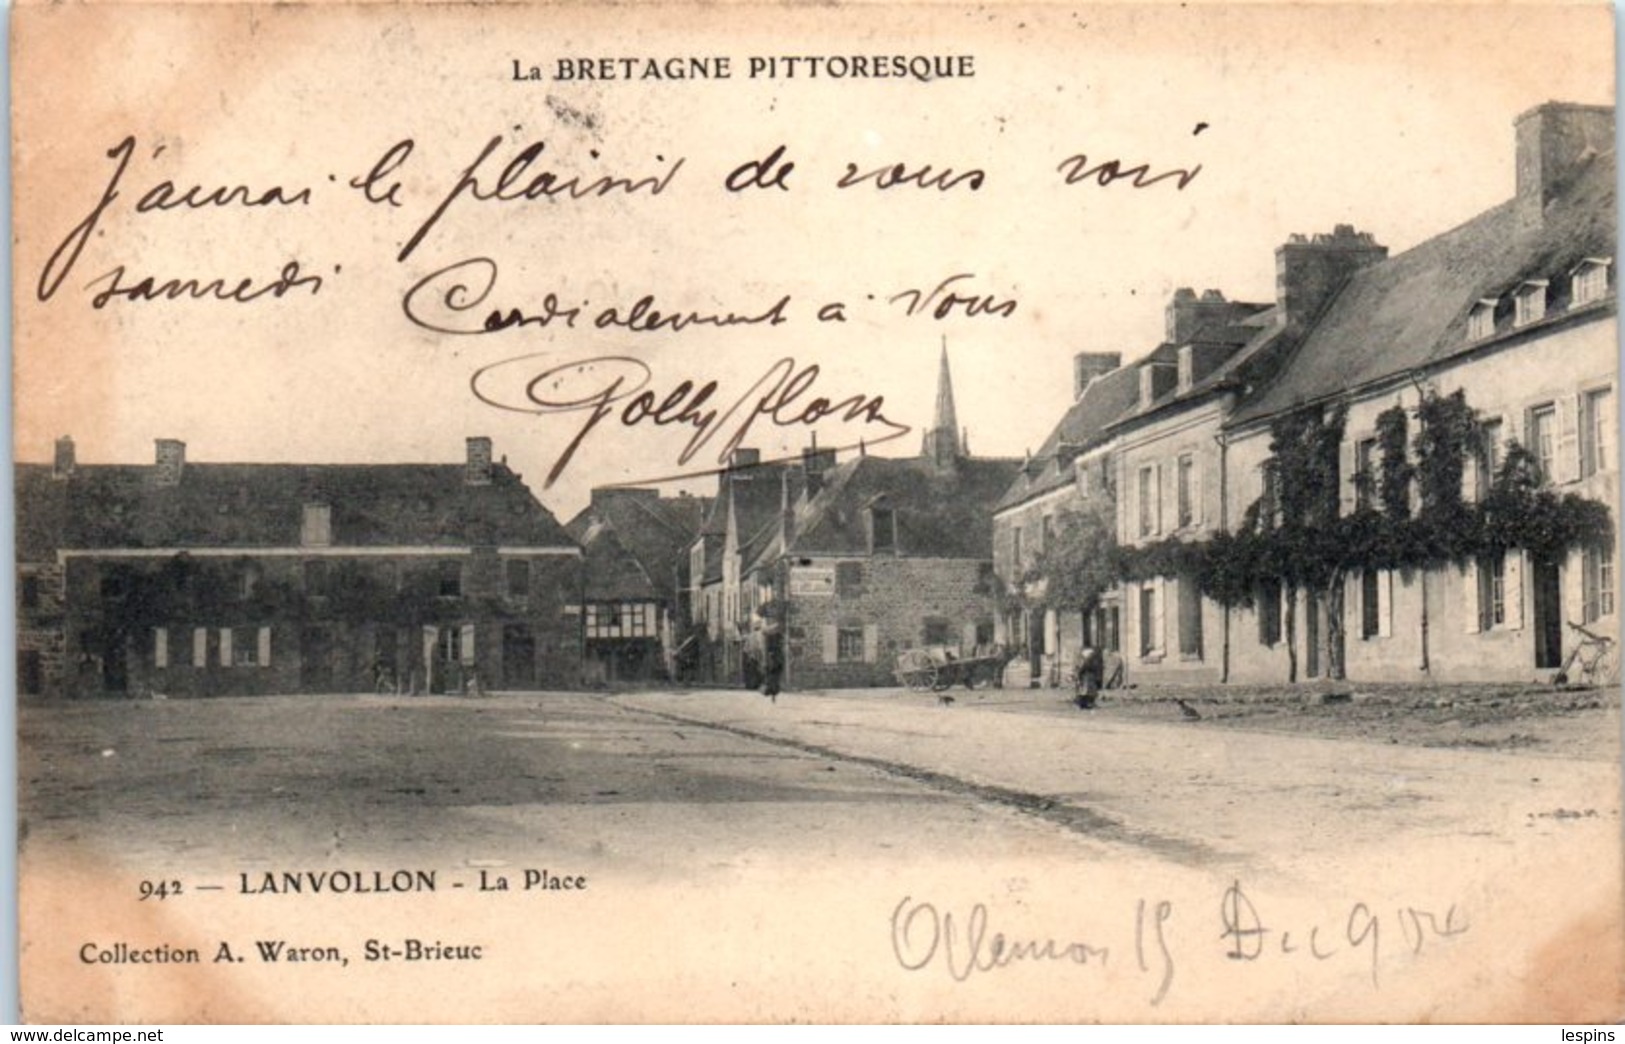 La BRETAGNE PITTORESQUE
J'aurai le plaisir de vous voir
samedi Cordialement à Vous
942 — LANVOLLON - La Place
Collection A. Waron, St-Brieuc
15
delcampe.net
lespins